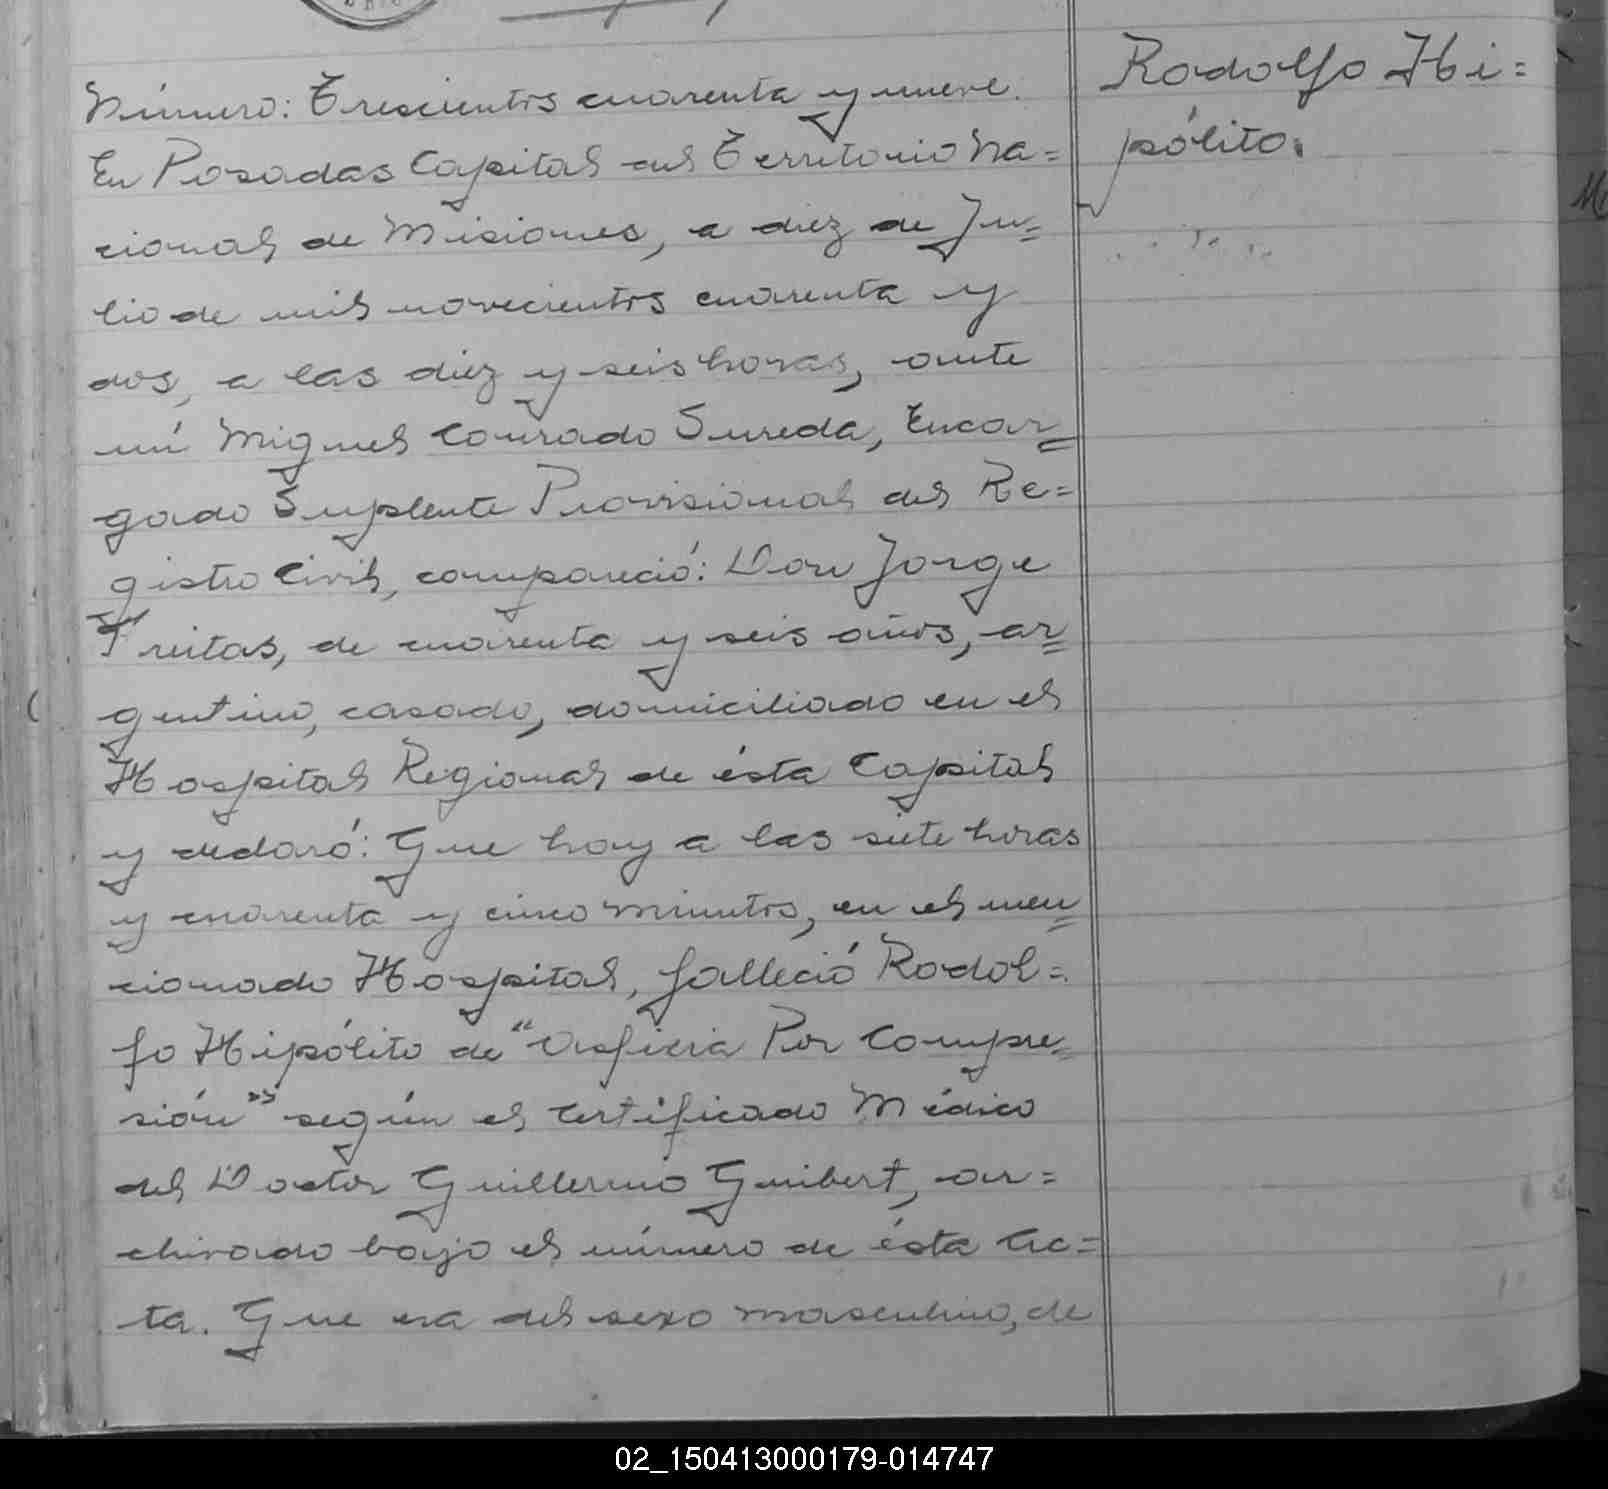 Número: Trescientos cuarenta y nueve.
En Posadas Capital del Territorio Na=
cional de Misiones, a diez de Ju=
lio de mil novecientos cuarenta y
dos, a las diez y seis horas, ante
mí Miguel Conrado Sureda, Encar=
gado Suplente Provisional del Re=
gistro Civil, compareció: Don Jorge
Freitas, de cuarenta y seis años, ar=
gentino, casado, domiciliado en el
Hospital Regional de ésta Capital
y declaró: Que hoy a las siete horas
y cuarenta y cinco minutos, en el men=
cionado Hospital, falleció Rodol=
fo Hipólito de "Asfixia Por Compre=
sión" según el Certificado Médico
del Doctor Guillermo Guibert, ar=
chivado bajo el número de ésta Ac=
ta. Que era del sexo masculino, de
Rodolfo Hi=
pólito.
02_150413000179-014747